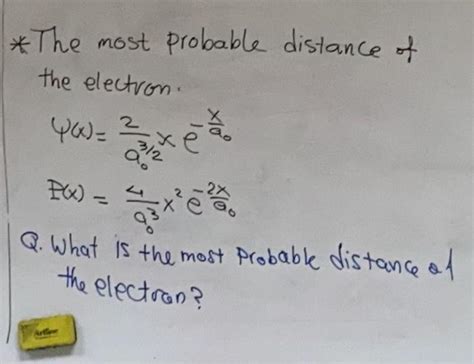 *The most probable distance of
the electron.
ψ(x) = 2/a₀^{3/2} x e^{-x/a₀}
P(x) = 4/a₀³ x² e^{-2x/a₀}
Q. What is the most Probable distance of
the electron?